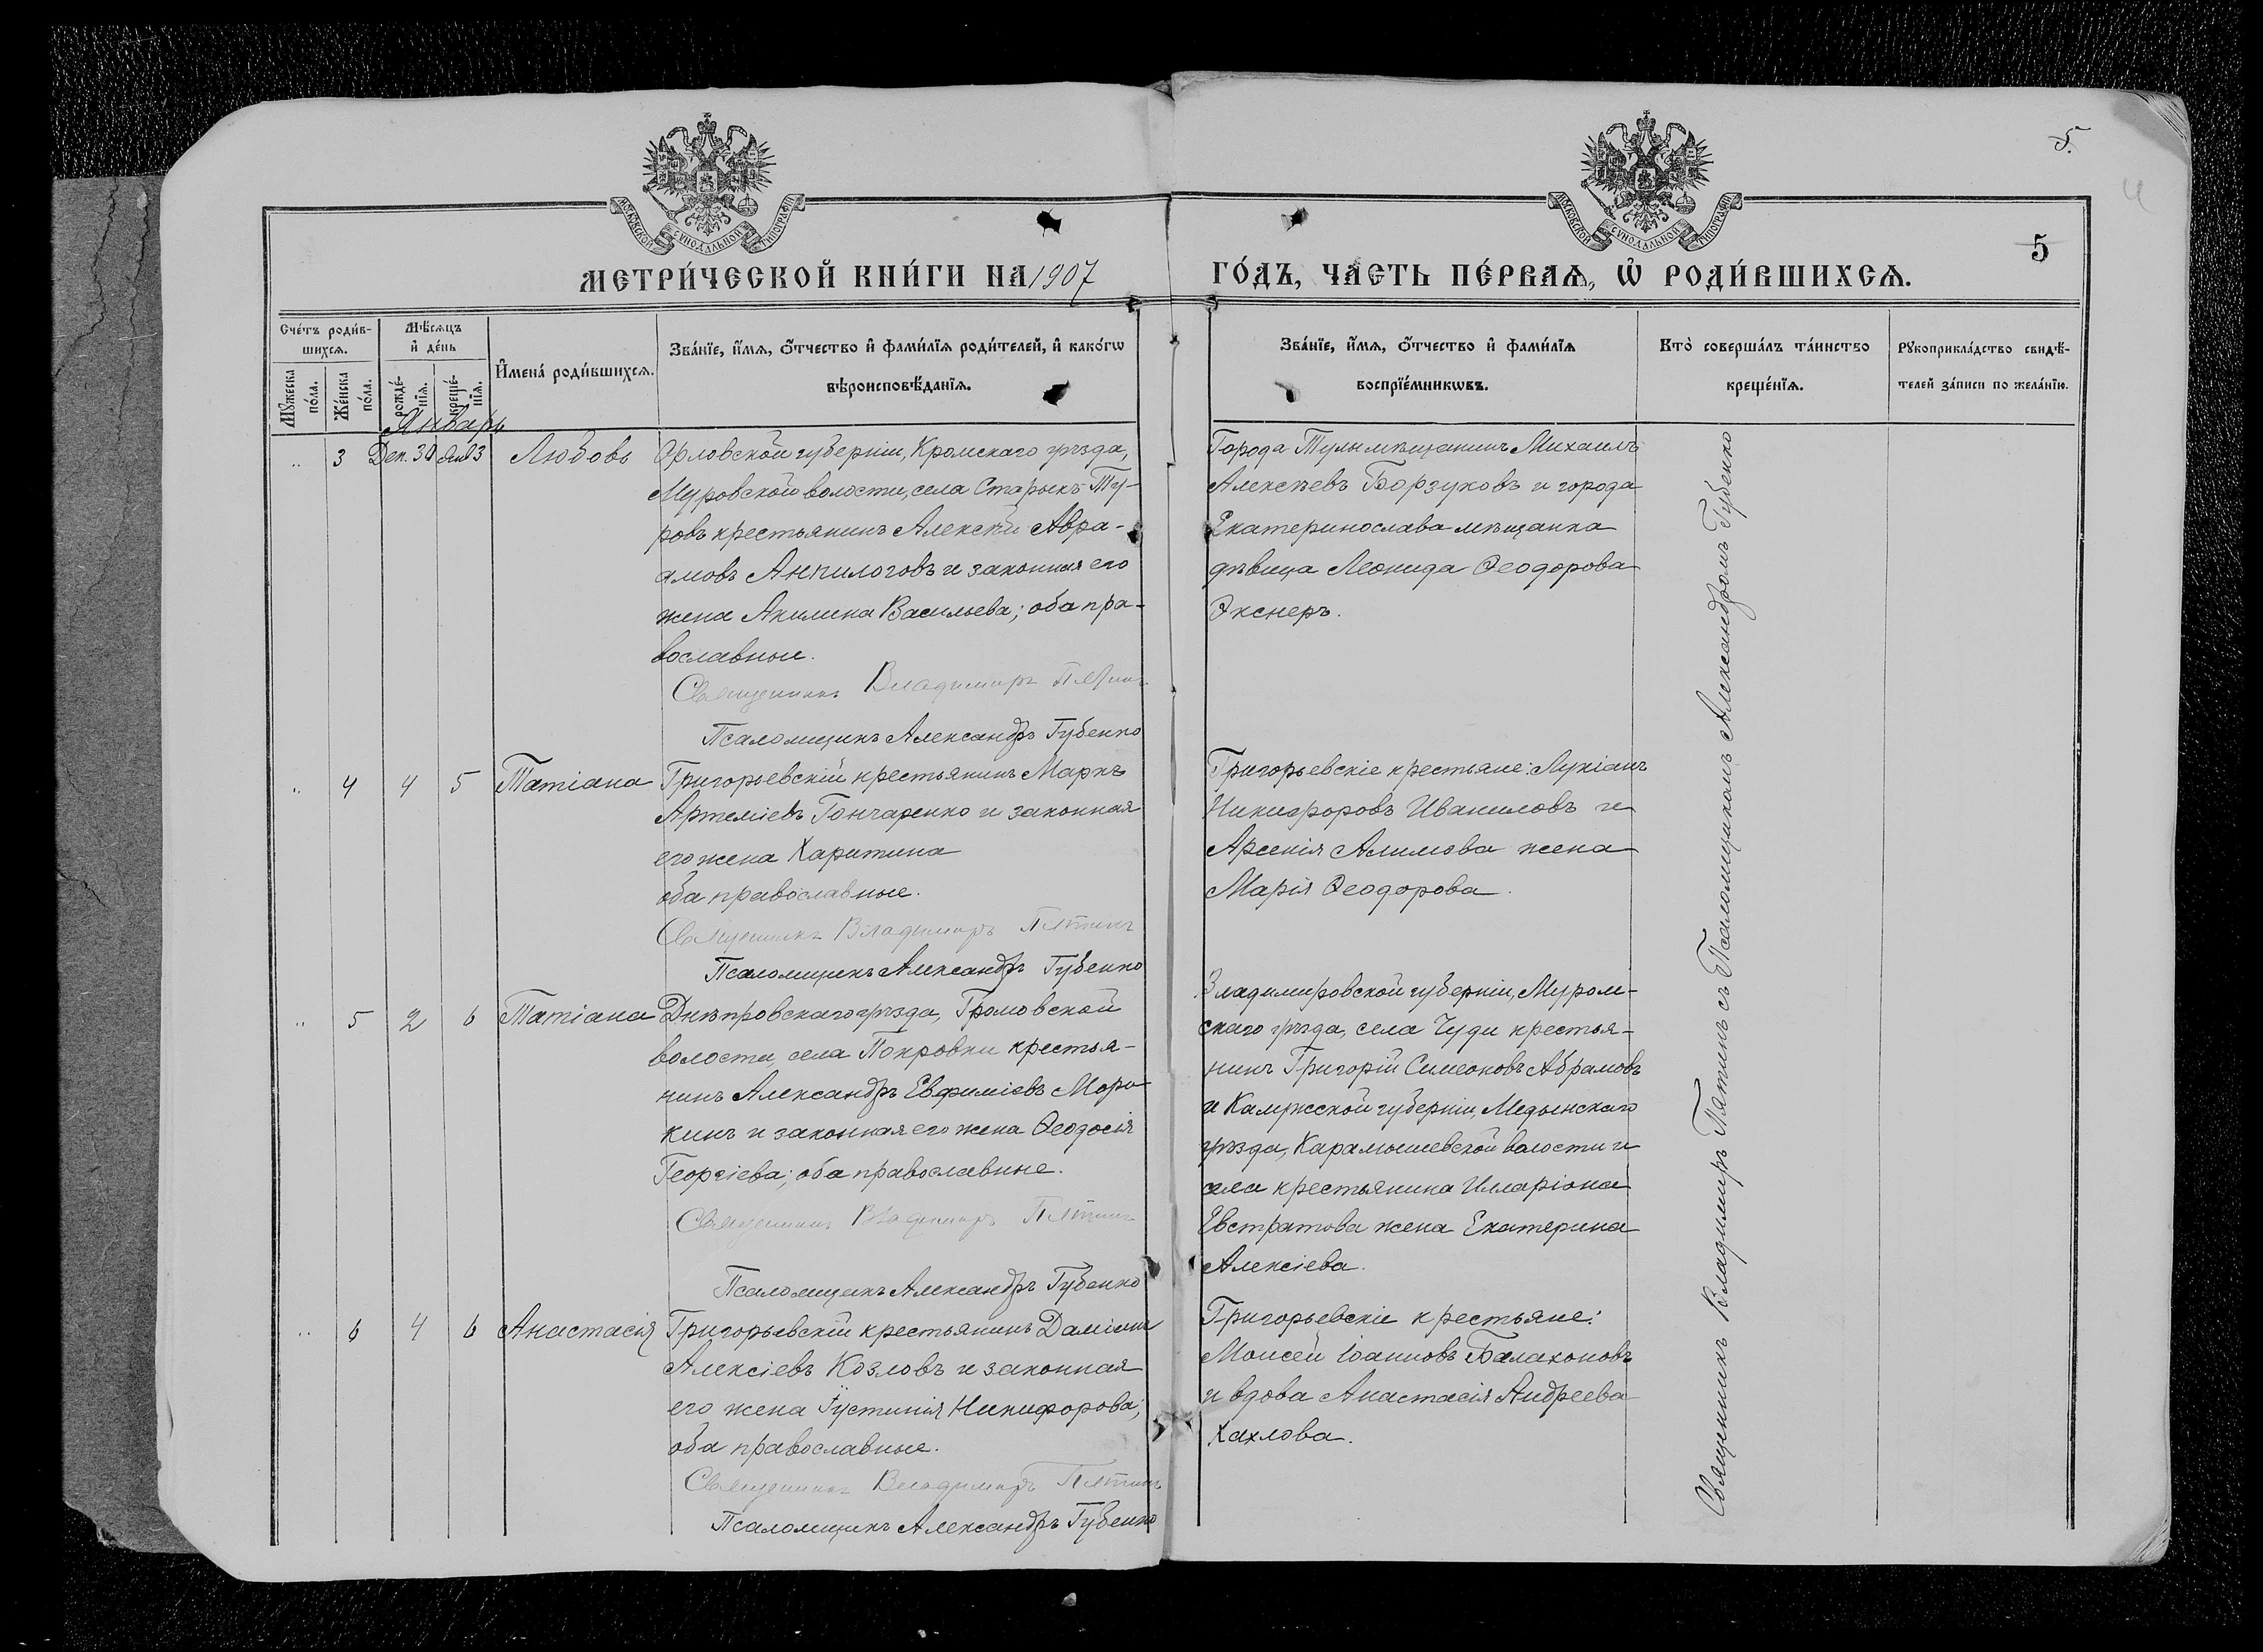 5.
МОСКОВСКОЙ СУНОДАЛЬНОЙ ТИПОГРАФІИ
МОСКОВСКОЙ СУНОДАЛЬНОЙ ТИПОГРАФІИ
5
МЕТРИ́ЧЕСКОЙ КНИ́ГИ НА 1907
ГО́ДЪ, ЧА́СТЬ ПЕ́РВАѦ, Ѡ҆ РОДИ́ВШИХСѦ.
Сче́тъ роди́в-
шихсѧ.
Мѣ́сѧцъ
и҆ де́нь
Мꙋ́жеска
по́ла.
Же́нска
по́ла.
рожде́-
нїѧ.
креще́-
нїѧ.
И҆мена̀ роди́вшихсѧ.
Зва́нїе, и҆́мѧ, ѻ҆́тчество и҆ фами́лїѧ роди́телей, и҆ како́гѡ
вѣроисповѣ́данїѧ.
Зва́нїе, и҆́мѧ, ѻ҆́тчество и҆ фами́лїѧ
воспрїе́мникѡвъ.
Кто̀ соверша́лъ та́инство
креще́нїѧ.
Рꙋкоприкла́дство свидѣ́-
телей за́писи по жела́нїю.
Январь
" 3 Дек. 31 Янв 3 Любовь
Орловской губерніи, Кромскаго уѣзда,
Муровской волости, села Старыхъ Ту-
ровъ крестьянинъ Алексѣй Авра-
амовъ Анпилоговъ и законная его
жена Акилина Васильева; оба пра-
вославные.
Священникъ Владимиръ Пятинъ
Псаломщикъ Александръ Губенко
Города Тулы мѣщанинъ Михаилъ
Алексѣевъ Борзуковъ и города
Екатеринослава мѣщанка
дѣвица Леонида Ѳеодорова
Экснеръ.
" 4 4 5 Татіана
Григорьевскій крестьянинъ Маркъ
Артеміевъ Гончаренко и законная
его жена Харитина
оба православные.
Священникъ Владимиръ Пятинъ
Псаломщикъ Александръ Губенко
Григорьевскіе крестьяне: Лукіанъ
Никифоровъ Иваниловъ и
Арсенія Алимова жена
Марія Ѳеодорова.
" 5 2 6 Татіана
Днѣпровскаго уѣзда, Громовской
волости, села Покровки крестья-
нинъ Александръ Евфиміевъ Моро-
кинъ и законная его жена Ѳеодосія
Георгіева; оба православные.
Священникъ Владимиръ Пятинъ
Псаломщикъ Александръ Губенко
Владимировской губерніи, Муром-
скаго уѣзда, села Чуди крестья-
нинъ Григорій Симеоновъ Абрамовъ
и Калужской губерніи, Медынскаго
уѣзда, Карамышевской волости и
села крестьянина Илларіона
Евстратова жена Екатерина
Алексіева.
" 6 4 6 Анастасія
Григорьевскій крестьянинъ Даміанъ
Алексіевъ Козловъ и законная
его жена Іустинія Никифорова;
оба православные.
Священникъ Владимиръ Пятинъ
Псаломщикъ Александръ Губенко
Григорьевскіе крестьяне:
Моисей Іоанновъ Балахоновъ
и вдова Анастасія Андреева
Хахлова.
Священникъ Владимиръ Пятинъ съ Псаломщикомъ Александромъ Губенко